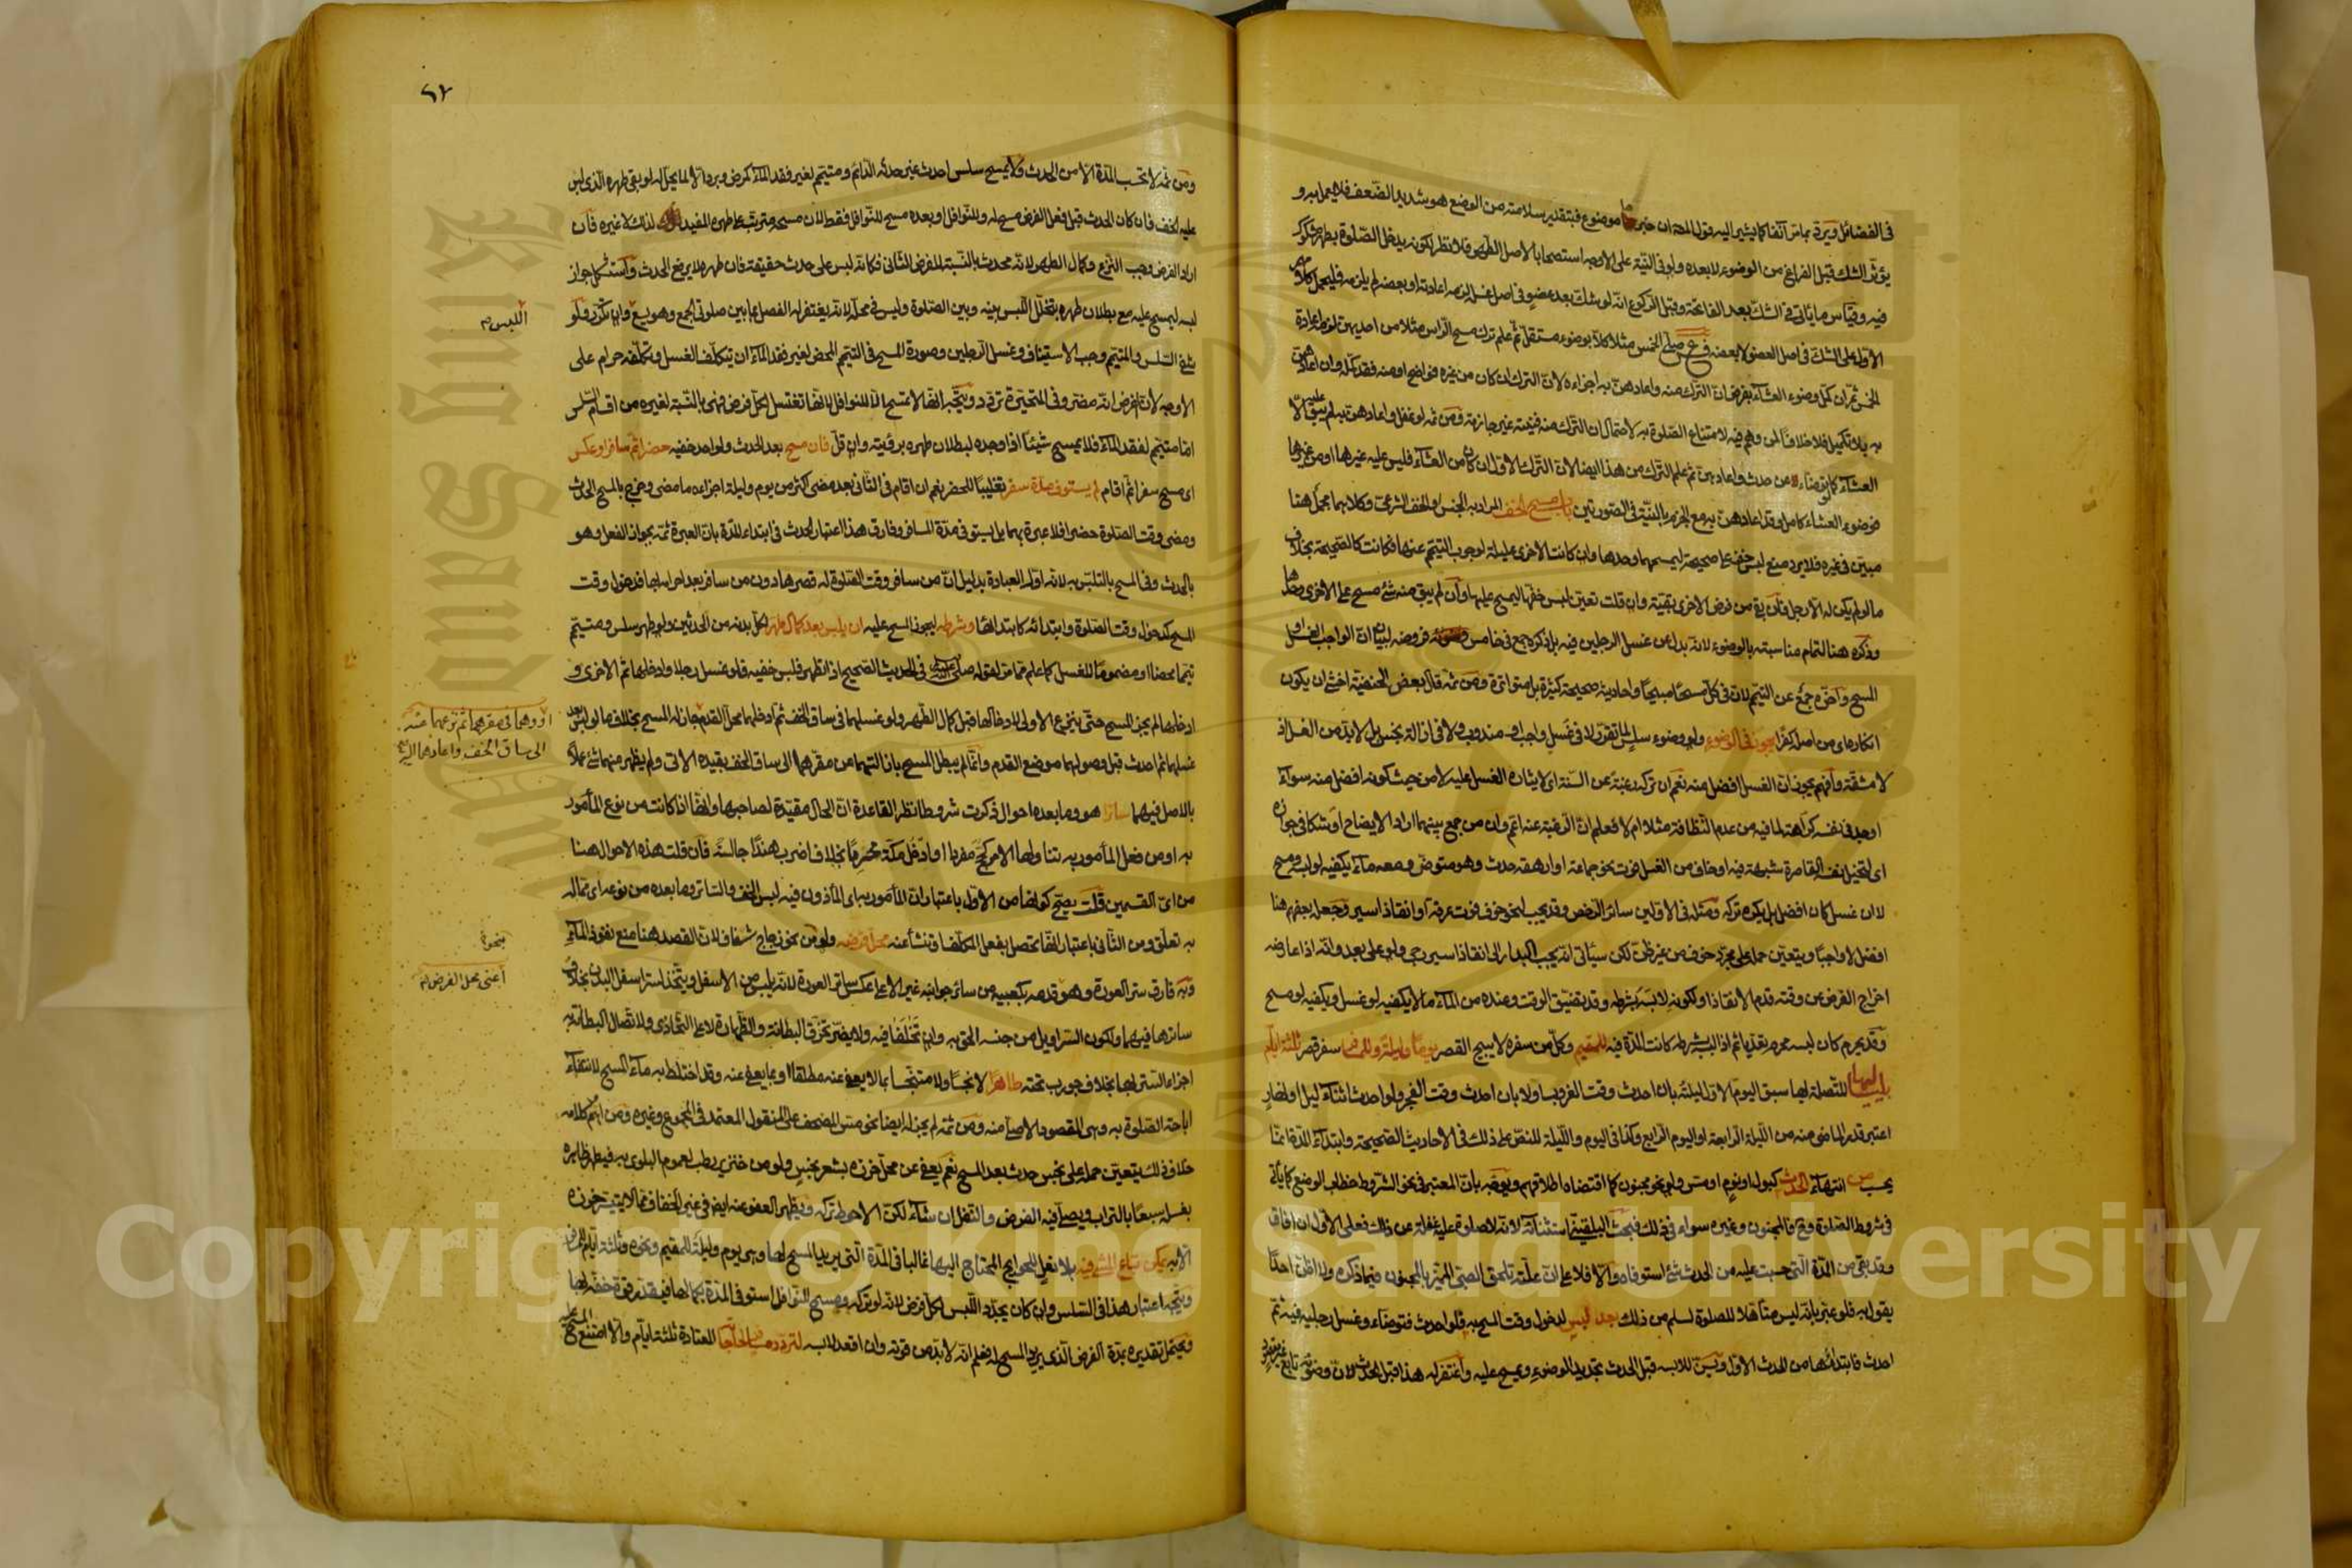 في الفضائل ويرد بما مر آنفا كما يشير اليه قول المص ان خبرها موضوع فبتقدير سلامته من الوضع هو شديد الضعف فلا يعمل به و
يؤثر الشك قبل الفراغ من الوضوء لا بعده ولو في النية على الاوجه استصحابا لاصل الطهر فلا نظر لكونه يدخل الصلوة بطهر مشكوك
فيه وقياس ما يأتي في الشك بعد الفاتحة وقبل الركوع انه لو شك بعد عضو في اصل غسله لزمه اعادته او بعضه لم يلزمه فليحمل كلامهم
الاول على الشك في اصل العضو لا بعضه فرع صلى الخمس مثلا كلا بوضوء مستقل ثم علم ترك مسح الرأس مثلا من احديهن لزمه اعادة
الخمس ثم ان كمل وضوء العشاء بفرض ان الترك منه واعادهن به اجزاءه لان الترك ان كان من غيره فواضح او منه فقد كمله وان اعادهن
به بلا تكميل فلا خلافا لمن وهم فيه لامتناع الصلوة به لاحتمال ان الترك منه فنيته غير جازمة ومن ثمه لو غفل واعادهن به لم يبق عليه الا
العشاء كما لو توضاء من حدث واعاد بن ثم علم الترك من هذا ايضا لان الترك الاول ان كان من العشاء فليس عليه غيرها او من غيرها
فوضوء العشاء كامل وقد اعادهن به مع الجزم بالنية في الصورتين باب مسح الخف المراد به الجنس او الخف الشرعي وكلاهما مجمل هنا
مبين في غيره فلا يرد منع لبس خف على صحيحة ليمسحها وحدها وان كانت الاخرى عليلة لوجوب التيمم عنها فكانت كالصحيحة بخلاف
ما لو لم يكن له الا رجل فان بقي من فرض الاخرى بقية وان قلت تعين لبس خفها ليمسح عليهما وان لم يبق منه شئ مسح على الاخرى وحدها
وذكره هنا لتمام مناسبته بالوضوء لانه بدل عن غسل الرجلين فيه بل ذكره جمع في خامس فروضه لبيان ان الواجب الغسل او
المسح واخره جمع عن التيمم لان في كل مسحا مبيحا واحاديثه صحيحة كثيرة بل متواترة ومن ثمه قال بعض الحنفية اخشى ان يكون
انكاره اى من اصله كفرا يجوز في الوضوء ولو وضوء سلس لما تقرر لا في غسل واجب او مندوب ولا في ازالة نجس بل لا بد من الغسل اذ
لا مشقة وافهم يجوز ان الغسل افضل منه نعم ان تركه رغبة عن السنة اى لايثاره الغسل عليه لا من حيث كونه افضل منه سواء
اوجد في نفسه كراهته لما فيه من عدم النظافة مثلا ام لا فعلم ان الرغبة عنه اعم وان من جمع بينهما اراد الايضاح او شكا في جوازه
اى لتخيل نفسه القاصرة شبهة فيه او خاف من الغسل فوت نحو جماعة او ارهقه حدث وهو متوض ومعه ماء يكفيه لو لبسه ومسح
لا ان غسل كان افضل بل يكره تركه ومثله في الاولين سائر الرخص وقد يجب لنحو خوف فوت عرفة او انقاذ اسير وجعله بعضهم هنا
افضل لا واجبا ويتعين حمله على مجرد خوف من غير ظن لكن سيأتي انه يجب البدار الى انقاذ اسير رجي ولو على بعد وانه اذا عارضه
اخراج الفرض عن وقته قدم الانقاذ او لكونه لابسه بشرطه وقد تضيق الوقت وعنده من الماء ما لا يكفيه لو غسل ويكفيه لو مسح
وقد يحرم كان لبسه محرم تعديا ثم اذا لبسه بشرطه كانت المدة فيه للمقيم وكل من سفره لا يبيح القصر يوما وليلة وللمسافر سفر قصر ثلثة ايام
بلياليها المتصلة بها سبق اليوم الاول ليلته بان احدث وقت الغروب او لا بان احدث وقت الفجر ولو احدث اثناء ليل او نهار
اعتبر قدر الماضي منه من الليلة الرابعة او اليوم الرابع وكذا في اليوم والليلة للنص على ذلك في الاحاديث الصحيحة وابتداء المدة انما
يحسب من انتهاء الحدث كبول او نوم او مس ولو نحو مجنون كما اقتضاه اطلاقهم ويوجه بان المعتبر في نحو الشروط خطاب الوضع كما يأتي
في شروط الصلوة وح فالمجنون وغيره سواء في ذلك فبحث البلقيني استثنائه لانه لا صلوة عليه غفلة عن ذلك فعلى الاول ان افاق
وقد بقي من المدة التي حسبت عليه من الحدث شئ استوفاه والا فلا على ان علته تلحق الصبي المميز بالمجنون فيما ذكره ولا اظن احدا
يقول به فلو عبر بانه ليس متأهلا للصلوة لسلم من ذلك بعد لبس لدخول وقت المسح به فلو احدث فتوضاء وغسل رجليه فيه ثم
احدث فابتداؤها من الحدث الاول ويسن للابسه قبل الحدث تجديد الوضوء ويمسح عليه واغتفر له هذا قبل الحدث لان وضوئه تابع غير مقصود
٦٢
ومن ثمه لا تحسب المدة الا من الحدث ولا يمسح سلس احدث غير حدثه الدائم ومتيمم لغير فقد الماء كمرض وبرد الا لما يحل له لو بقي طهره الذي لبس
عليه الخف فان كان الحدث قبل فعل الفرض مسح له وللنوافل او بعده مسح للنوافل فقط لان مسحه مترتب على طهره المفيد لذلك لا غيره فان
اراد الفرض وجب النزع وكمال الطهر لانه محدث بالنسبة للفرض الثاني فكانه لبس على حدث حقيقة فان طهره لا يرفع الحدث واستشكل جواز
لبسه ليمسح عليه مع بطلان طهره بتخلل اللبس بينه وبين الصلوة وليس في محله لانه يغتفر له الفصل بما بين صلوتي الجمع وهو يسع وان تكرر فلو
شفي السلس والمتيمم وجب الاستيناف وغسل الرجلين وصورة المسح في التيمم المحض لغير فقد الماء ان يتكلف الغسل وتكلفه حرام على
الاوجه لان الفرض انه مضر وفي المتحيرة تردد ويتجه انها لا تمسح الا للنوافل لانها تغتسل لكل فرض فهي بالنسبة لغيره من اقسام السلس
اما متيمم لفقد الماء فلا يمسح شيئا اذا وجده لبطلان طهره برؤيته وان قل فان مسح بعد الحدث ولو احد خفيه حضرا ثم سافر او عكس
اى مسح سفرا ثم اقام لم يستوف مدة سفر تغليبا للحضر نعم ان اقام في الثاني بعد مضي اكثر من يوم وليلة اجزاءه ما مضى وخرج بالمسح الحدث
ومضي وقت الصلوة حضرا فلا عبرة بهما بل يستوفي مدة المسافر وفارق هذا اعتبار الحدث في ابتداء المدة بان العبرة ثمه بجواز الفعل وهو
بالحدث وفي المسح بالتلبس به لانه اول العبادة بدليل ان من سافر وقت الصلوة له قصرها دون من سافر بعد احرامه بها فدخول وقت
المسح كدخول وقت الصلوة وابتدائه كابتدائها وشرطه ليجوز المسح عليه ان يلبس بعد كمال طهر لكل بدنه من الحدثين ولو طهر سلس ومتيمم
تيمما محضا او مضموما للغسل كما علم مما مر لقوله صلى الله عليه وسلم في الحديث الصحيح اذا تطهر فلبس خفيه فلو غسل رجلا وادخلها ثم الاخرى و
ادخلها لم يجز المسح حتى ينزع الاولى لادخالها قبل كمال الطهر ولو غسلهما في ساق الخف ثم ادخلهما محل القدم جاز له المسح بخلاف ما لو لبس بعد
غسلهما ثم احدث قبل وصولهما موضع القدم وانما لم يبطل المسح بازالتهما من مقرهما الى ساق الخف بقيده الاتي ولم يظهر منهما شئ عملا
بالاصل فيهما ساتر هو وما بعده احوال ذكرت شروطا نظرا لقاعدة ان الحال مقيدة لصاحبها وانها اذا كانت من نوع المأمور
به او من فعل المأمور به تناولها الامر كحج مفردا او ادخل مكة محرما بخلاف اضرب هندا جالسة فان قلت هذه الاحوال هنا
من اى القسمين قلت يصح كونها من الاول باعتبار ان المأمور به اى المأذون فيه لبس الخف والساتر وما بعده من نوعه اى مما له
به تعلق ومن الثاني باعتبار انها تحصل بفعل المكلف او تنشأ عنه محل فرضه ولو من نحو زجاج شفاف لان القصد هنا منع نفوذ الماء
وبه فارق ستر العورة وهو قدمه بكعبيه من سائر جوانبه غير الاعلى عكس ساتر العورة لانه يلبس من الاسفل ويتخذ لستر اسفل البدن بخلاف
ساترها فيهما ولكون السراويل من جنسه الحق به وان تخلفا فيه ولا يضر تخرق البطانة والظهارة لا على التحاذي ولاتصال البطانة به
اجزاء الستر بها بخلاف جورب تحته طاهرا لا نجسا ولا متنجسا بما لا يعفى عنه مطلقا او بما يعفى عنه وقد اختلط به ماء المسح لانتفاء
اباحة الصلوة به وهي المقصود الاصلي منه ومن ثمه لم يجز له ايضا نحو مس المصحف على المنقول المعتمد في المجموع وغيره ومن اوهم كلامه
خلاف ذلك يتعين حمله على نجس حدث بعد المسح نعم يعفى عن محل خرزه بشعر نجس ولو من خنزير رطب لعموم البلوى به فيطهر ظاهره
بغسله سبعا بالتراب ويصلي فيه الفرض والنفل ان شاء لكن الاحوط تركه ويظهر العفو عنه ايضا في غير الخفاف مما لا يتيسر خرزه
الا به يمكن تباع المشي فيه بلا نعل للحوايج المحتاج اليها غالبا في المدة التي يريد المسح لها وهي يوم وليلة للمقيم ونحوه وثلثة ايام للمسافر
ويتجه اعتبار هذا في السلس وان كان يجدد اللبس لكل فرض لانه لو تركه ومسح للنوافل استوفى المدة بكمالها فيقدر قوة خفه لها
ويحتمل تقديره بمدة الفرض الذي يريد المسح له فعلم انه لا بد من قوته وان اقعد لابسه لتردد مسافر لحاجاته المعتادة ثلثة ايام والا امتنع المسح عليه
اللبس م
او وهما في مقرهما ثم نزعهما منه
الى ساق الخف واعادهما اليه
بنحوه
اعني محل الفرض له
Copyright © King Saud University